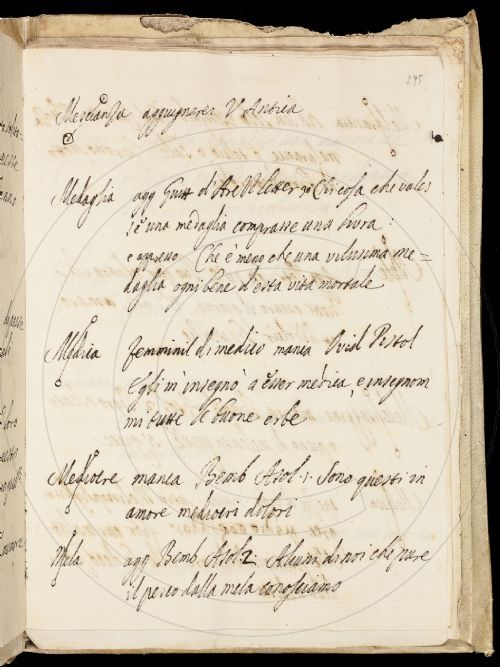 295
Mescianza aggiugnerei V Antica
Medaglia agg Guitt d'Are letter Chi cosa che vales
se una medaglia comprasse una livra:
e appresso Che è meno che una vilissima me=
daglia ogni bene d'esta vita mortale
Medica femminil di medico manca Ovid Pistol
Egli m'insegnò a esser medica, e insegnom
mi tutte le buone erbe
Mediocre manca Bemb Asol 1: Sono questi in
amore mediocri dolori
Mela agg Bemb Asol 2: Alcuni di noi che pure
il pesco dalla mela conosciamo